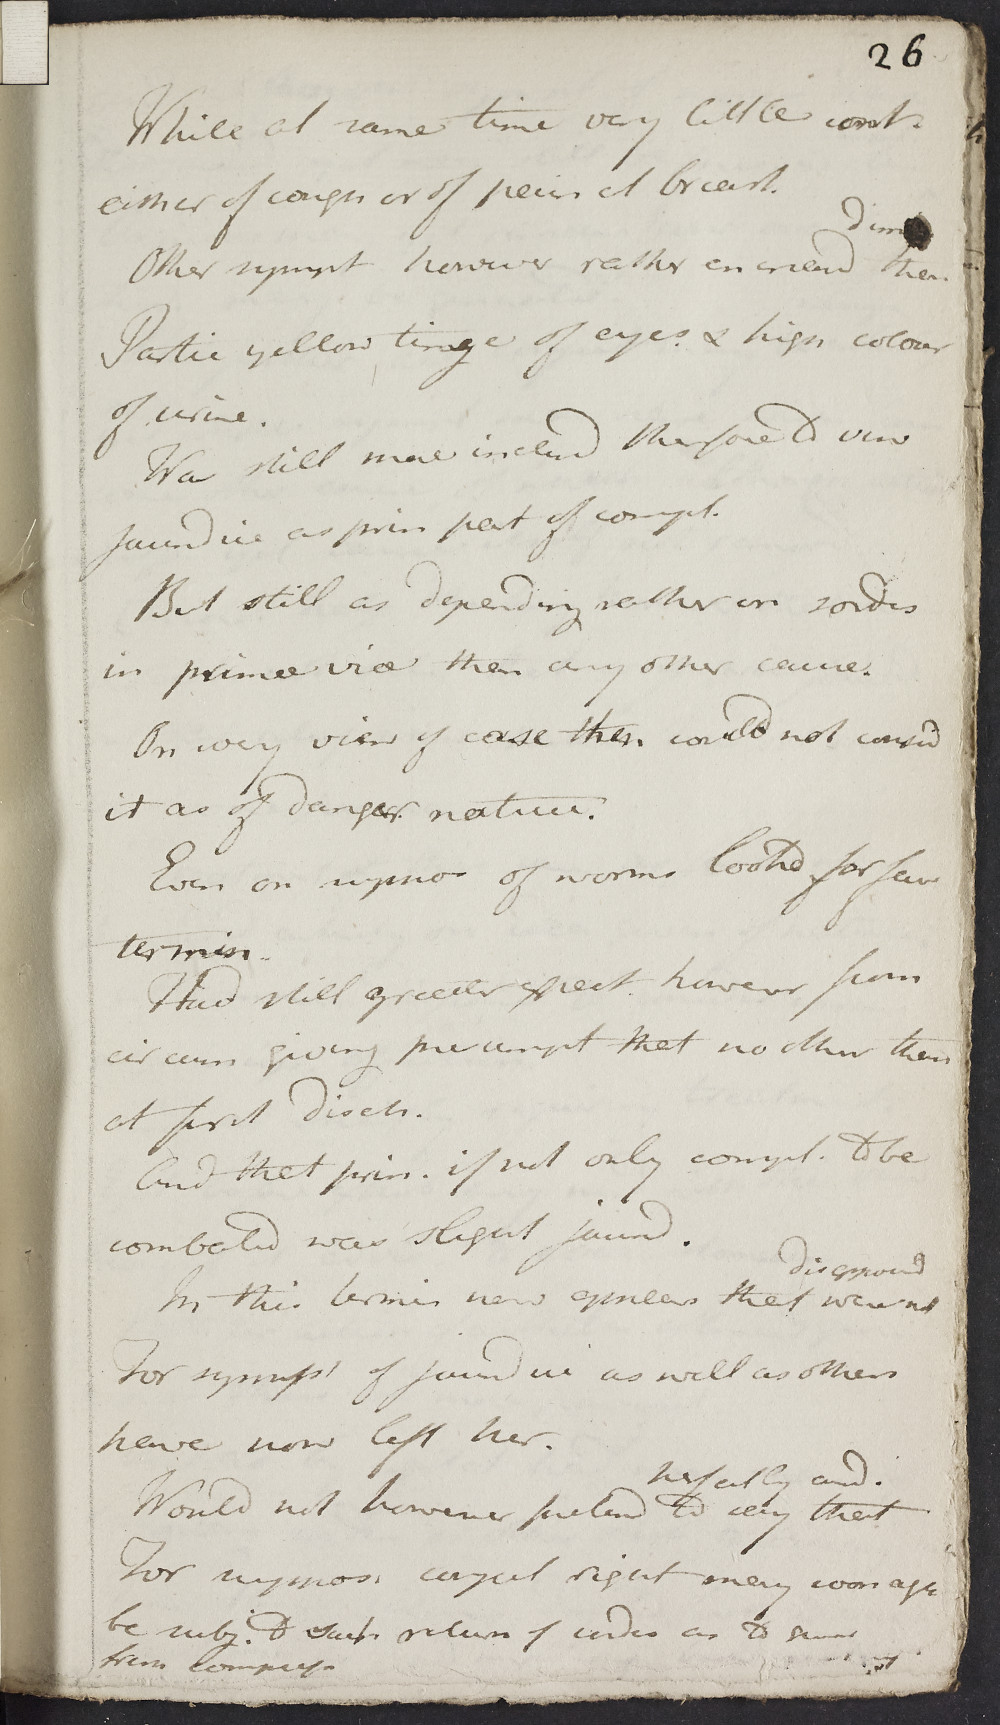 26
While at same time very little cont.
either of cough or of pain at breast.
Other sympt however rather on mend than dim
Partic yellow tinge of eyes & high colour
of urine.
Was still more inclind therfore to view
jaundice as prin part of compl.
But still as depending rather on sordes
in primae viae then any other cause.
On every view of case then could not consid
it as of danger nature.
Even on suppos of worms lookd for fav
termin.
Had still greater expect. however from
circum giving presumpt that no other then
at first disch.
And that prin. if not only compl. to be
combated was slight jaund.
In this termin now appears that were not disappoind
For sympt of jaundice as well as others
have now left her.
Would not however pretend to say that perfectly and.
For suppos. conject right may soon again
be subj. to such return of sordes as to